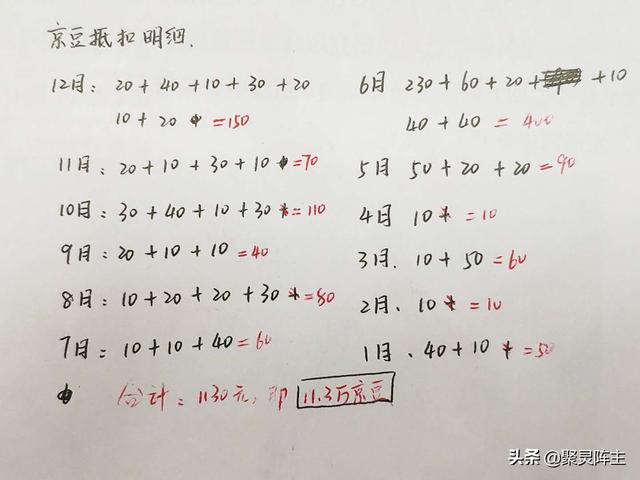 京豆抵扣明细.
12月: 20 + 40 + 10 + 30 + 20
10 + 20 = 150
11月: 20 + 10 + 30 + 10 = 70
10月: 30 + 40 + 10 + 30 = 110
9月: 20 + 10 + 10 = 40
8月: 10 + 20 + 20 + 30 = 80
7月: 10 + 10 + 40 = 60
6月 230 + 60 + 20 + + 10
40 + 40 = 400
5月 50 + 20 + 20 = 90
4月 10 = 10
3月. 10 + 50 = 60
2月、10 = 10
1月、40 + 10 = 50
合计: 1130元, 即 11.3万京豆
头条 @聚灵阵主